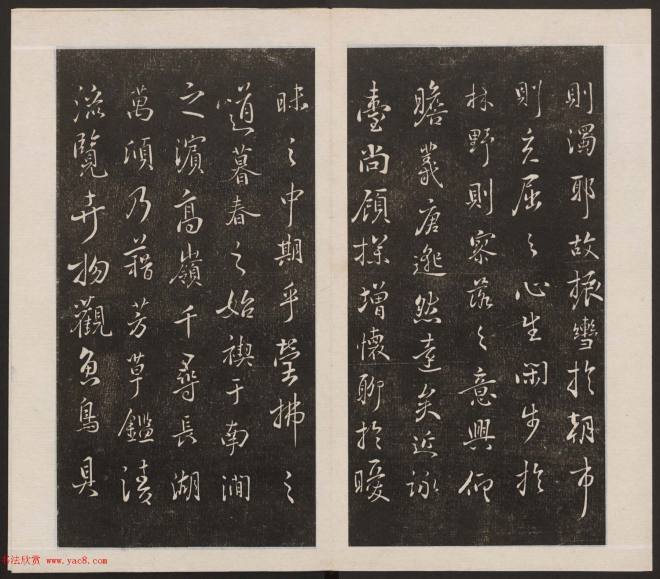 則濁耶故振轡於朝市
則充屈之心生閑步於
林野則寥落之意興仰
瞻羲唐邈然遠矣近詠
臺尚顧探增懷聊於曖
昧之中期乎瑩拂之
道暮春之始禊于南澗
之濱高嶺千尋長湖
萬頃乃藉芳草鑑清
流覽卉物觀魚鳥具
书法欣赏 www.yac8.com